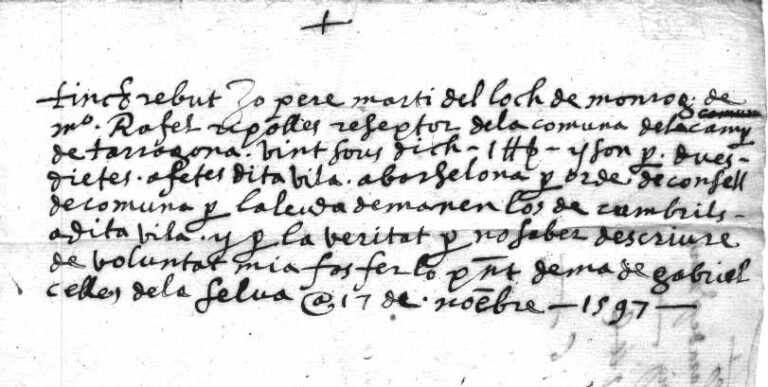 +
tinch rebut Jo pere marti del loch de monrog de
mo. Rafel ripolles reseptor dela comuna
dela camp
de tarragona. vint sous dich - 1 ll - y son p. dues -
dietes. afetes dita vila. a barselona p orde. de consell
de comuna p la leuda demanen los de cambrils -
a dita vila. y p la veritat p no saber descriure
de voluntat mia fas fer lo pnt de ma de gabriel
celles dela selva @ 17 de. noembre - 1597 -